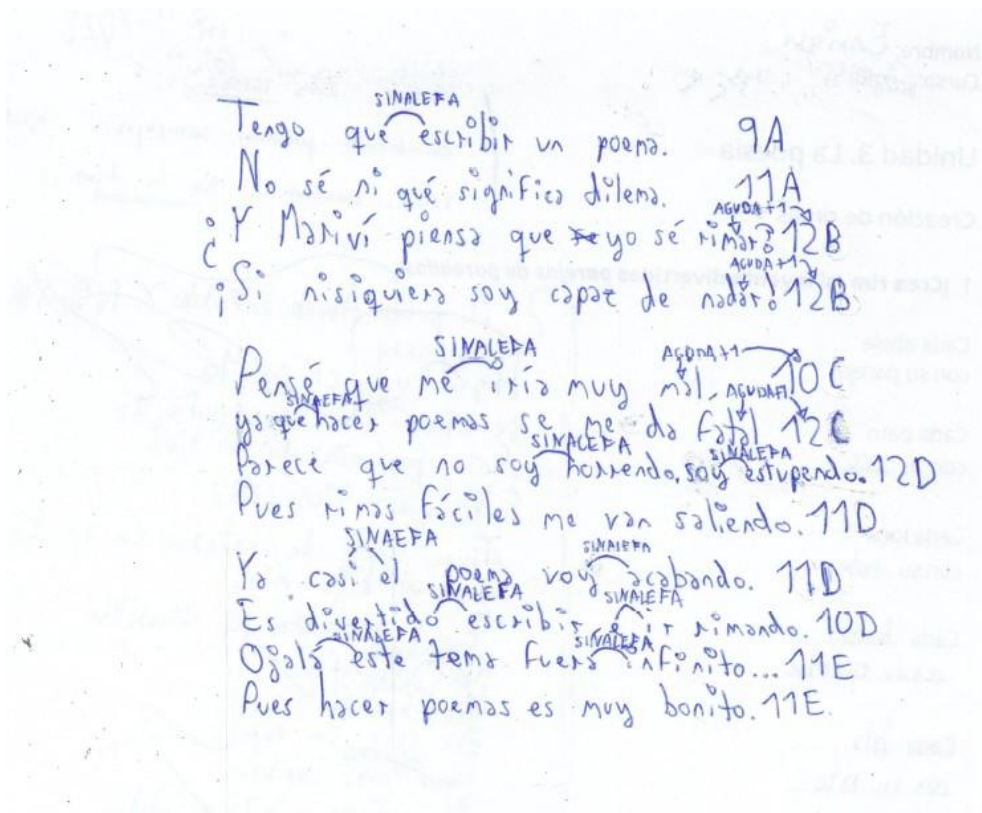 SINALEFA
Tengo que escribir un poema. 9A
No sé ni qué significa dilema. 11A
AGUDA+1
¿Y Mariví piensa que yo sé rimar? 12B
AGUDA+1
¡Si nisiquiera soy capaz de nadar! 12B
SINALEFA AGUDA+1
Pensé que me iría muy mal, 10C
SINAEFA AGUDA+1
ya que hacer poemas se me da fatal 12C
SINALEFA SINALEFA
Parece que no soy horrendo, soy estupendo. 12D
Pues rimas fáciles me van saliendo. 11D
SINAEFA SINALEFA
Ya casi el poema voy acabando. 11D
SINALEFA SINALEFA
Es divertido escribir e ir rimando. 10D
SINALEFA SINALEFA
Ojalá este tema fuera infinito... 11E
Pues hacer poemas es muy bonito. 11E
Nombre:
Curso:
Unidad 3. La poesía
Creación de